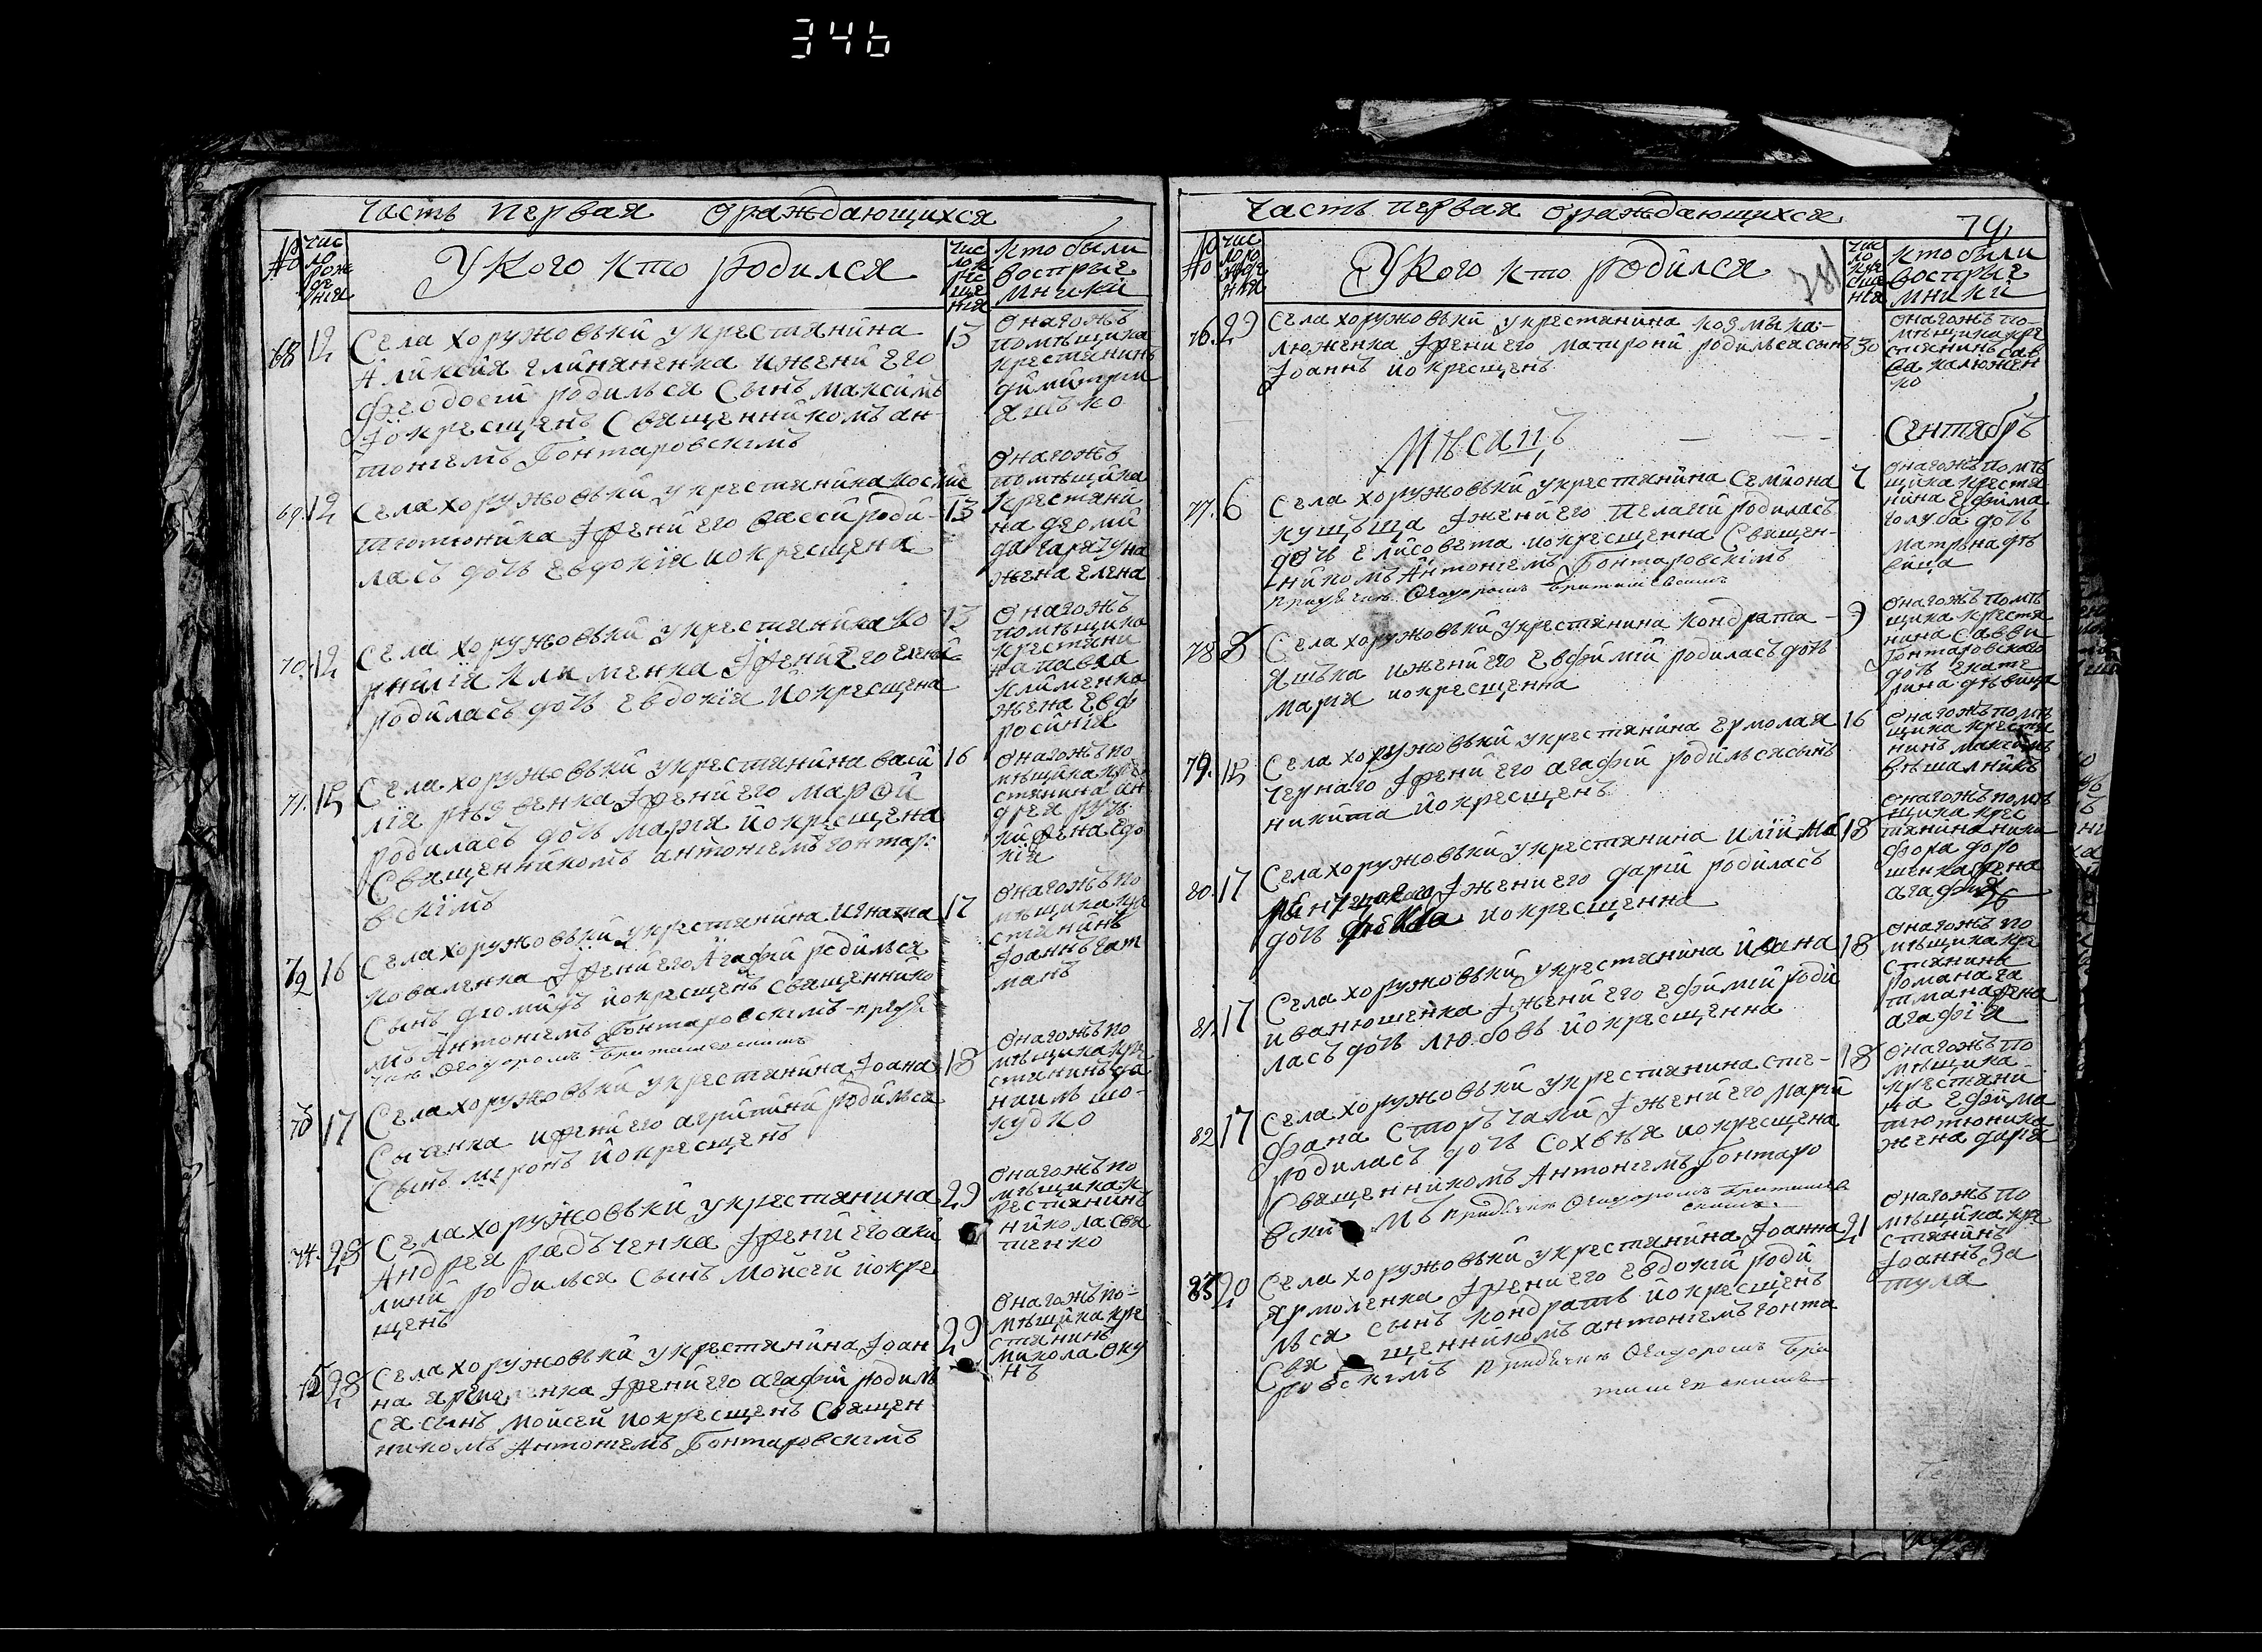 346
Часть первая о раждающихся
№
Чис
ло
рож
де
нія
У Кого кто родился
Чис
ло к
ре
ще
нія
Кто были
восприе
мники
68
12
Села хоружовъки у крестянина
Аликсія глиняненка и жени его
Феодосіи родилься Сынъ максимъ
и окрещенъ Священникомъ ан-
тоніемъ Гонтаровскимъ
13
Онагожъ
помѣщика
крестянинъ
димитрии
яшъко
69.
12
Села хоружовъки у крестянина
тютюника и жени его васси роди-
ласъ дочь евдокія и окрещена
13
Онагожъ
помѣщика
крестяни
на
жена елена
70.
12
Села хоружовъки у крестянина ко
рнилія клименка и жени его елени
родиласъ дочь евдокія и окрещена
13
Онагожъ
помѣщика
крестяни
на павла
клименка
жена евф
росинія
71.
15
Села хоружовъки у крестянина васи
лія и жени его марфи
родиласъ дочь марія и окрещена
Священникомъ антоніемъ гонтар:
вскімъ
16
Онагожъ по
мѣщика кре
стянина ан
дрея
жена евдо
кія
72
16
Села хоружовъки у крестянина игната
коваленка и жени его Агафіи родилься
Сынъ диомидъ и окрещенъ священнико
мъ Антоніемъ Гонтаровскимъ-
17
Онагожъ по
мѣщика кре
стянинъ
Іоаннъ гат
манъ
73
17
Села хоружовъки у крестянина Іоана
Сыченка и жени его агрипини родилься
Сынъ миронъ и окрещенъ
18
Онагожъ по
мѣщика кре
стянинъ да
ниилъ шо-
кудко
74.
28
Села хоружовъки у крестянина
Андрея радъченка и жени его аки
лини родилься Сынъ Моисей и окре
щенъ
29
Онагожъ по
мѣщика к
рестянинъ
никола сви
тенко
75
28
Села хоружовъки у крестянина Іоан
на и жени его агафіи родилъ
ся сынъ моисей и окрещенъ Священ
никомъ Антоніемъ Гонтаровскимъ
29
Онагожъ по-
мѣщика кре
стянинъ
микола оку
нъ
Часть первая о раждающихся
79
№
Чис
ло ро
жде
нія
У Кого кто родился
Чис
ло
кре
ще
нія
Кто были
восприе
мники
76.
29
Села хоружовъки у крестянина козмы ка-
люженка и жени его матрони родилься сынъ
Іоаннъ и окрещенъ
30
Онагожъ по-
мѣщика кре
стянинъ сав
ва калюжен
ко
Мѣсяцъ
Сентябръ
77.
6
Села хоружовъки у крестянина Семиона
и жени его Пелагіи родиласъ
дочь елисовета и окрещенна Священ-
никомъ Антоніемъ Гонтаровскимъ
7
Онагожъ помѣ
щика крестя
нина ефима
голуба дочь
матрена дѣ
вица
78
8
Села хоружовъки у крестянина Кондрата
яшъка и жени его евфиміи родиласъ дочь
Марія и окрещенна
9
Онагожъ помѣ
щика крестя
нина савви
Гонтаровского
дочь екате
рина дѣвица
79.
15
Села хоружовъки у крестянина ермолая
Чернаго и жени его агафіи родилься сынъ
никита и окрещенъ
16
Онагожъ помѣ
щика крестя
нинъ максимъ
вѣшалникъ
80.
17
Села хоружовъки у крестянина иліи ма
и жени его даріи родиласъ
дочь фекла и окрещенна
18
Онагожъ помѣ
щика крес
тянина ники
фора доро
шенка жена
агафія
81.
17
Села хоружовъки у крестянина ивана
иванюшенка и жени его ефиміи роди
ласъ дочь любовъ и окрещенна
18
Онагожъ по
мѣщика кре
стянина
романа га
тмана жена
агафія
82
17
Села хоружовъки у крестянина сте-
фана сторъчаки и жени его маріи
родиласъ дочь софъія и окрещена
Священникомъ Антоніемъ Гонтаро
вски мъ
18
Онагожъ по
мѣщика
крестяни
на ефима
тютюника
жена дарія
83
20
Села хоружовъки у крестянина Іоанна
ярмоленка и жени его евдокіи роди
лься сынъ кондратъ и окрещенъ
Свя щенникомъ антоніемъ гонта
ровскимъ
21
Онагожъ по
мѣщика кре
стянинъ
Іоаннъ За
тула